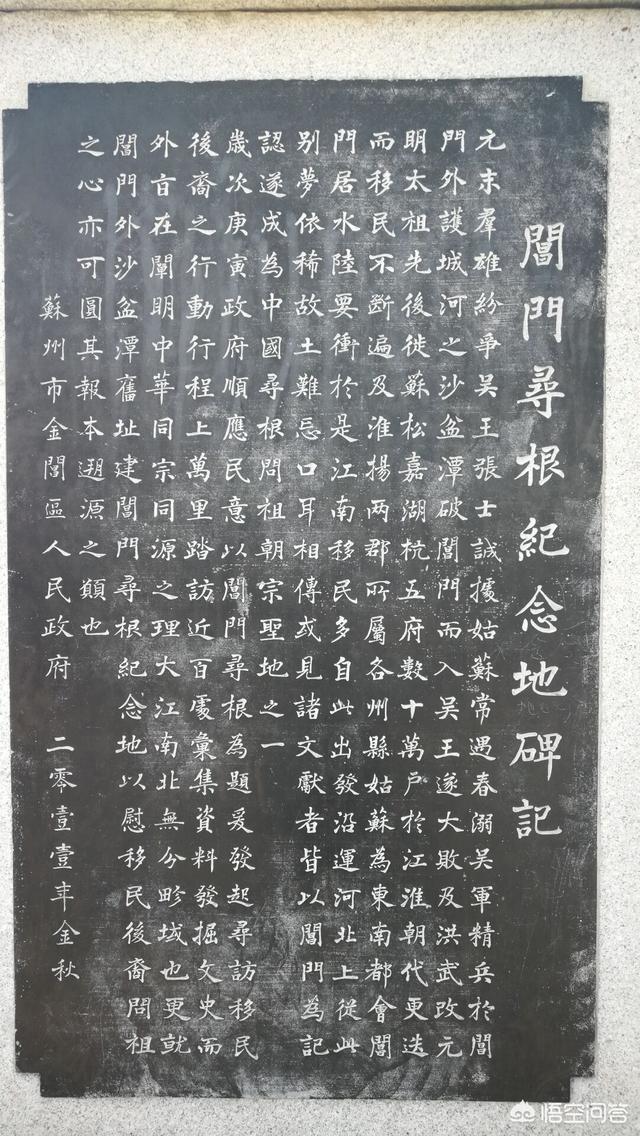 閶門尋根紀念地碑記
元末羣雄紛爭吴王張士誠據姑蘇常遇春溺吴軍精兵於閶
門外護城河之沙盆潭破閶門而入吴王遂大敗及洪武改元
明太祖先後徙蘇松嘉湖杭五府數十萬戶於江淮朝代更迭
而移民不斷遍及淮揚两郡所屬各州縣姑蘇為東南都會閶
門居水陸要衝於是江南移民多自此出發沿運河北上從此
别夢依稀故土難忘口耳相傳或見諸文獻者皆以閶門為記
認遂成為中國尋根問祖朝宗聖地之一
歲次庚寅政府順應民意以閶門尋根為題爰發起尋訪移民
後裔之行動行程上萬里踏訪近百處彙集資料發掘文史而
外旨在闡明中華同宗同源之理大江南北無分畛域也更就
閶門外沙盆潭舊址建閶門尋根紀念地以慰移民後裔問祖
之心亦可圓其報本遡源之願也
蘇州市金閶區人民政府 二零壹壹年金秋
悟空问答